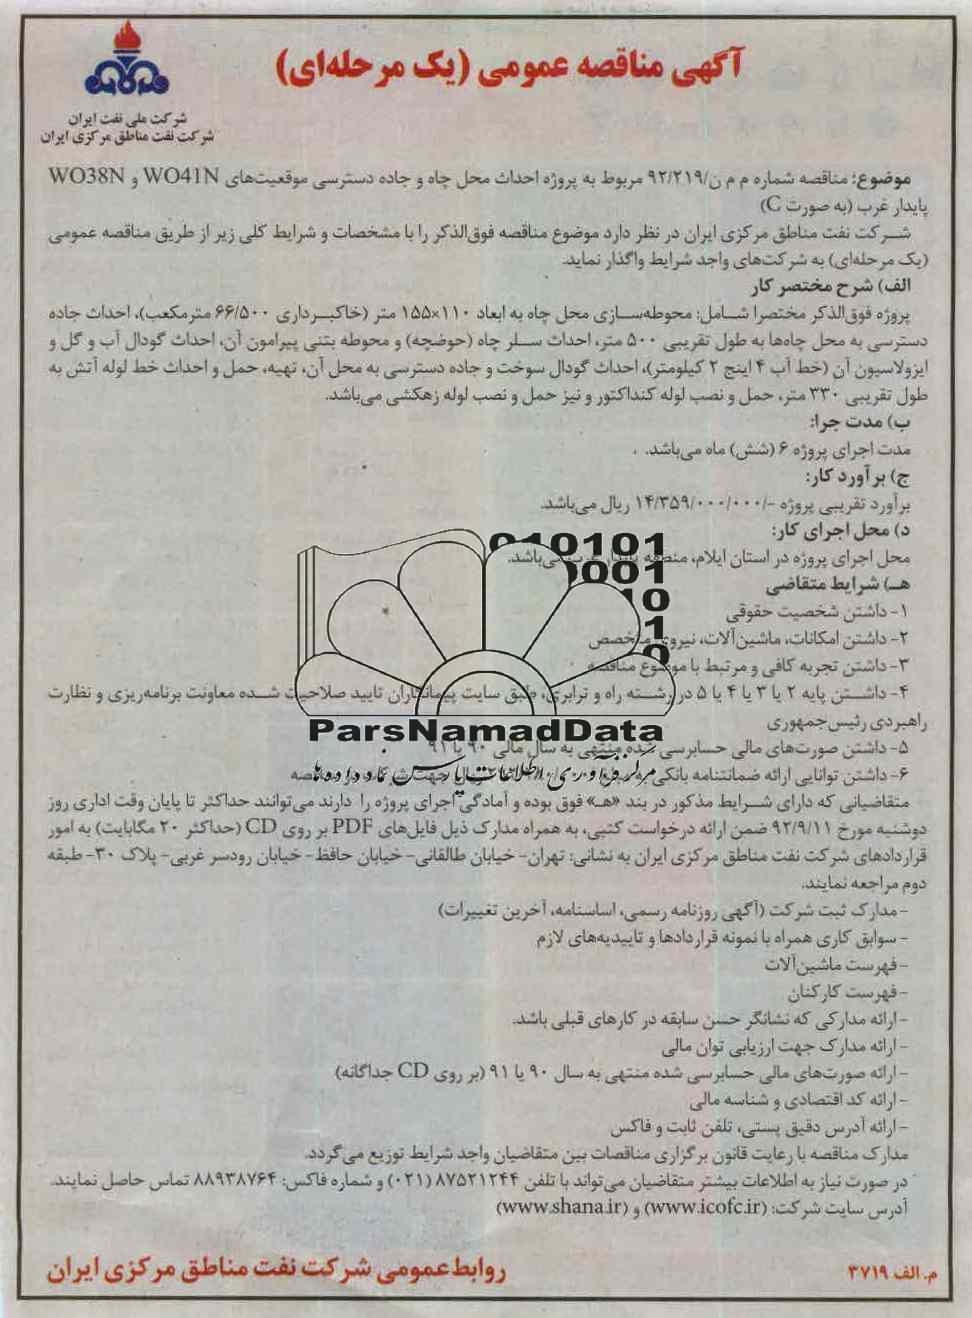 آگهی مناقصه عمومی (یک مرحله‌ای)
شرکت ملی نفت ایران
شرکت نفت مناطق مرکزی ایران
موضوع: مناقصه شماره م م ن/۹۲/۲۱۹ مربوط به پروژه احداث محل چاه و جاده دسترسی موقعیت‌های WO41N و WO38N
پایدار غرب (به صورت C)
شرکت نفت مناطق مرکزی ایران در نظر دارد موضوع مناقصه فوق‌الذکر را با مشخصات و شرایط کلی زیر از طریق مناقصه عمومی
(یک مرحله‌ای) به شرکت‌های واجد شرایط واگذار نماید.
الف) شرح مختصر کار
پروژه فوق‌الذکر مختصرا شامل: محوطه‌سازی محل چاه به ابعاد ۱۱۰×۱۵۵ متر (خاکبرداری ۶۶/۵۰۰ مترمکعب)، احداث جاده
دسترسی به محل چاه‌ها به طول تقریبی ۵۰۰ متر، احداث سلر چاه (حوضچه) و محوطه بتنی پیرامون آن، احداث گودال آب و گل و
ایزولاسیون آن (خط آب ۴ اینچ ۲ کیلومتر)، احداث گودال سوخت و جاده دسترسی به محل آن، تهیه، حمل و احداث خط لوله آتش به
طول تقریبی ۳۳۰ متر، حمل و نصب لوله کنداکتور و نیز حمل و نصب لوله زهکشی می‌باشد.
ب) مدت جرا:
مدت اجرای پروژه ۶ (شش) ماه می‌باشد.
ج) برآورد کار:
برآورد تقریبی پروژه -/۱۴/۳۵۹/۰۰۰/۰۰۰ ریال می‌باشد.
د) محل اجرای کار:
محل اجرای پروژه در استان ایلام، منطقه پایدار غرب می‌باشد.
هـ) شرایط متقاضی
۱- داشتن شخصیت حقوقی
۲- داشتن امکانات، ماشین‌آلات، نیروی متخصص
۳- داشتن تجربه کافی و مرتبط با موضوع مناقصه
۴- داشتن پایه ۲ یا ۳ یا ۴ یا ۵ در رشته راه و ترابری، طبق سایت پیمانکاران تایید صلاحیت شده معاونت برنامه‌ریزی و نظارت
راهبردی رئیس‌جمهوری
۵- داشتن صورت‌های مالی حسابرسی شده منتهی به سال مالی ۹۰ یا ۹۱
۶- داشتن توانایی ارائه ضمانتنامه بانکی
متقاضیانی که دارای شرایط مذکور در بند «هـ» فوق بوده و آمادگی اجرای پروژه را دارند می‌توانند حداکثر تا پایان وقت اداری روز
دوشنبه مورخ ۹۲/۹/۱۱ ضمن ارائه درخواست کتبی، به همراه مدارک ذیل فایل‌های PDF بر روی CD (حداکثر ۲۰ مگابایت) به امور
قراردادهای شرکت نفت مناطق مرکزی ایران به نشانی: تهران- خیابان طالقانی- خیابان حافظ- خیابان رودسر غربی- پلاک ۳۰- طبقه
دوم مراجعه نمایند.
-مدارک ثبت شرکت (آگهی روزنامه رسمی، اساسنامه، آخرین تغییرات)
- سوابق کاری همراه با نمونه قراردادها و تاییدیه‌های لازم
-فهرست ماشین‌آلات
-فهرست کارکنان
-ارائه مدارکی که نشانگر حسن سابقه در کارهای قبلی باشد.
- ارائه مدارک جهت ارزیابی توان مالی
-ارائه صورت‌های مالی حسابرسی شده منتهی به سال ۹۰ یا ۹۱ (بر روی CD جداگانه)
-ارائه کد اقتصادی و شناسه مالی
-ارائه آدرس دقیق پستی، تلفن ثابت و فاکس
مدارک مناقصه با رعایت قانون برگزاری مناقصات بین متقاضیان واجد شرایط توزیع می‌گردد.
در صورت نیاز به اطلاعات بیشتر متقاضیان می‌تواند با تلفن ۸۷۵۲۱۲۴۴ (۰۲۱) و شماره فاکس: ۸۸۹۳۸۷۶۴ تماس حاصل نمایند.
آدرس سایت شرکت: (www.icofc.ir) و (www.shana.ir)
روابط عمومی شرکت نفت مناطق مرکزی ایران
م. الف ۳۷۱۹
ParsNamadData
مرکز فرآوری اطلاعات پارس نماد داده‌ها